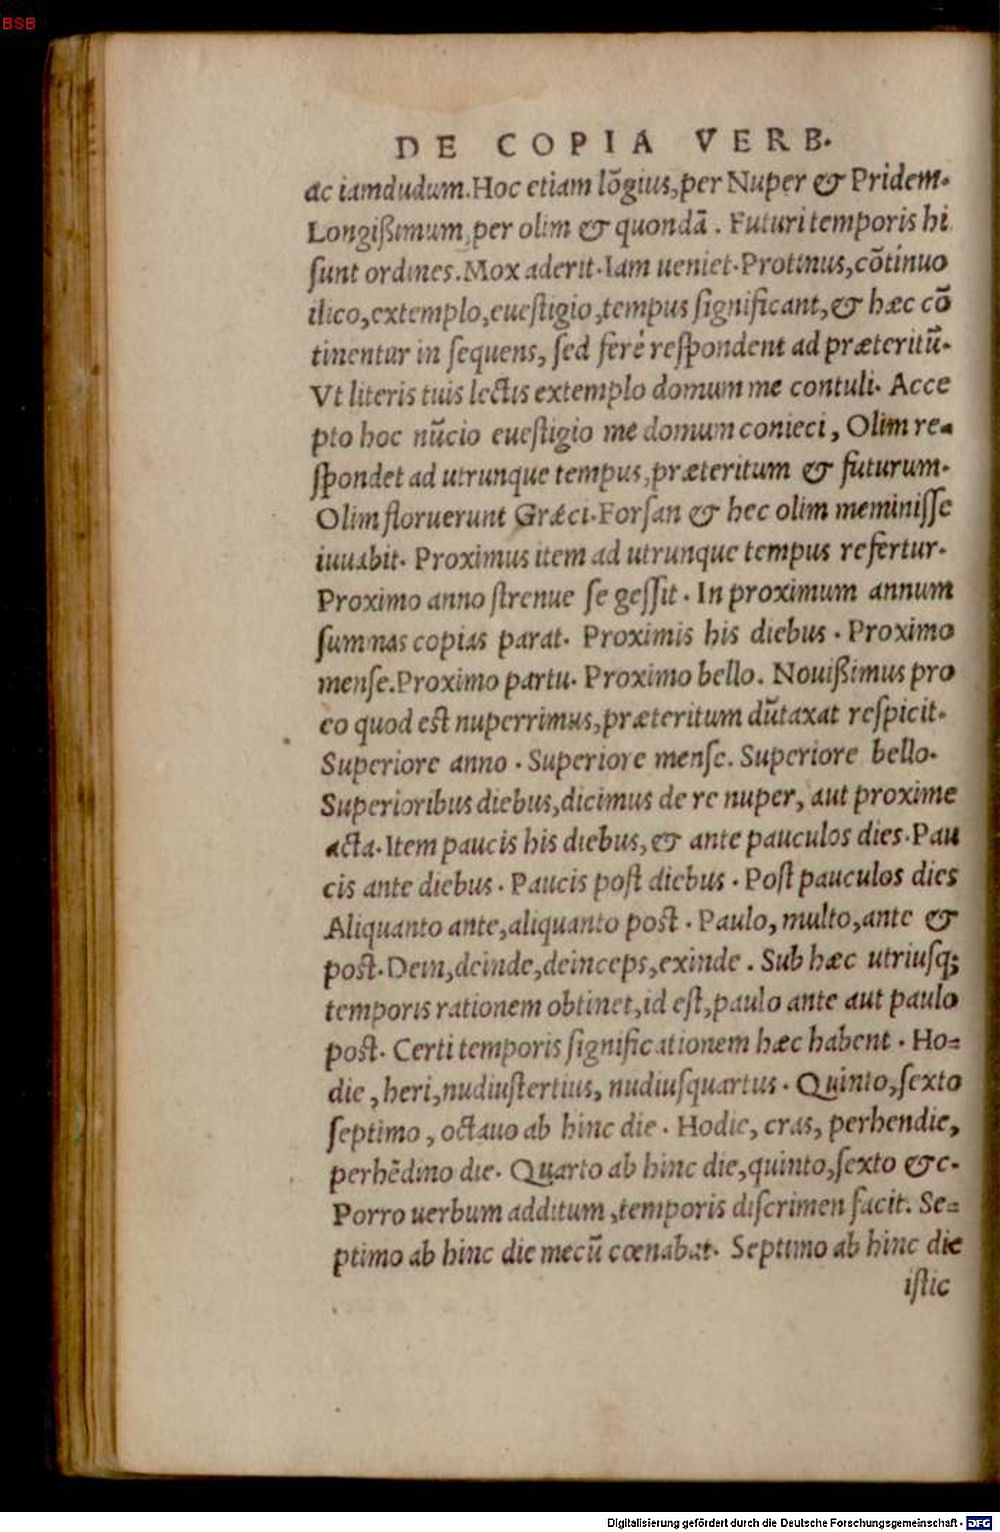 BSB
DE COPIA VERB.
ac iamdudum. Hoc etiam lōgius, per Nuper & Pridem.
Longißimum, per olim & quondā. Futuri temporis hi
ſunt ordines. Mox aderit. Iam ueniet. Protinus, cōtinuo
ilico, extemplo, eueſtigio, tempus ſignificant, & hæc cō
tinentur in ſequens, ſed ferè reſpondent ad præteritū.
Vt literis tuis lectis extemplo domum me contuli. Acce
pto hoc nūcio eueſtigio me domum conieci, Olim re-
ſpondet ad utrunque tempus, præteritum & futurum.
Olim floruerunt Græci. Forſan & hec olim meminiſſe
iuuabit. Proximus item ad utrunque tempus refertur.
Proximo anno ſtrenue ſe geſſit. In proximum annum
ſummas copias parat. Proximis his diebus. Proximo
menſe. Proximo partu. Proximo bello. Nouißimus pro
eo quod est nuperrimus, præteritum dūtaxat reſpicit.
Superiore anno. Superiore menſe. Superiore bello.
Superioribus diebus, dicimus de re nuper, aut proxime
acta. Item paucis his diebus, & ante pauculos dies. Pau
cis ante diebus. Paucis poſt diebus. Poſt pauculos dies
Aliquanto ante, aliquanto post. Paulo, multo, ante &
post. Dein, deinde, deinceps, exinde. Sub hæc utriuſq;
temporis rationem obtinet, id eſt, paulo ante aut paulo
post. Certi temporis ſignificationem hæc habent. Ho=
die, heri, nudiuſtertius, nudiuſquartus. Quinto, ſexto
ſeptimo, octauo ab hinc die. Hodie, cras, perhendie,
perhēdino die. Quarto ab hinc die, quinto, ſexto &c.
Porro uerbum additum, temporis diſcrimen facit. Se=
ptimo ab hinc die mecū cœnabat. Septimo ab hinc die
iſtic
Digitalisierung gefördert durch die Deutsche Forschungsgemeinschaft - DFG